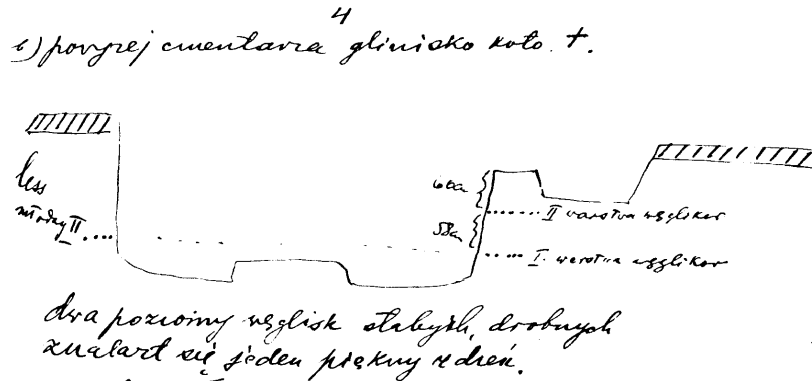 4
b) powyżej cmentarza glinisko koło †.
less
młodszy II
60cm
II warstwa węglików
58cm
I. warstwa węglików
dwa poziomy węglisk słabych, drobnych
znalazł się jeden piękny rdzeń.